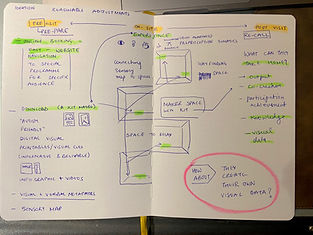 REASONABLE ADJUSTMENTS
PRE VISIT
PREPARE
ONLINE BOOKING
EASY WEBSITE
NAVIGATION
TO SPECIAL
PROGRAMME
FOR SPECIFIC
AUDIENCE
DOWNLOAD (A KIT MAKER)
"AUTISM
FRIENDLY"
DIGITAL VISUAL
PRINTABLES/VISUAL CUES
INFO GRAPHIC + VIDEOS
- VISUAL + VERBAL METAPHORS
- SENSORY MAP
ON SITE
EXPERIENCE
connecting
sensory
map to spaces
WAY FINDING
SPACE
MAKER SPACE
SPACE TO RELAX
POST VISIT
RE-CALLS
WHAT CAN THEY
TAKE HOME?
- output
- co-creation
- participation
achievement
- knowledge
- visual
data
HOW
ABOUT
THEY
CREATE
THEIR OWN
VISUAL DATA?